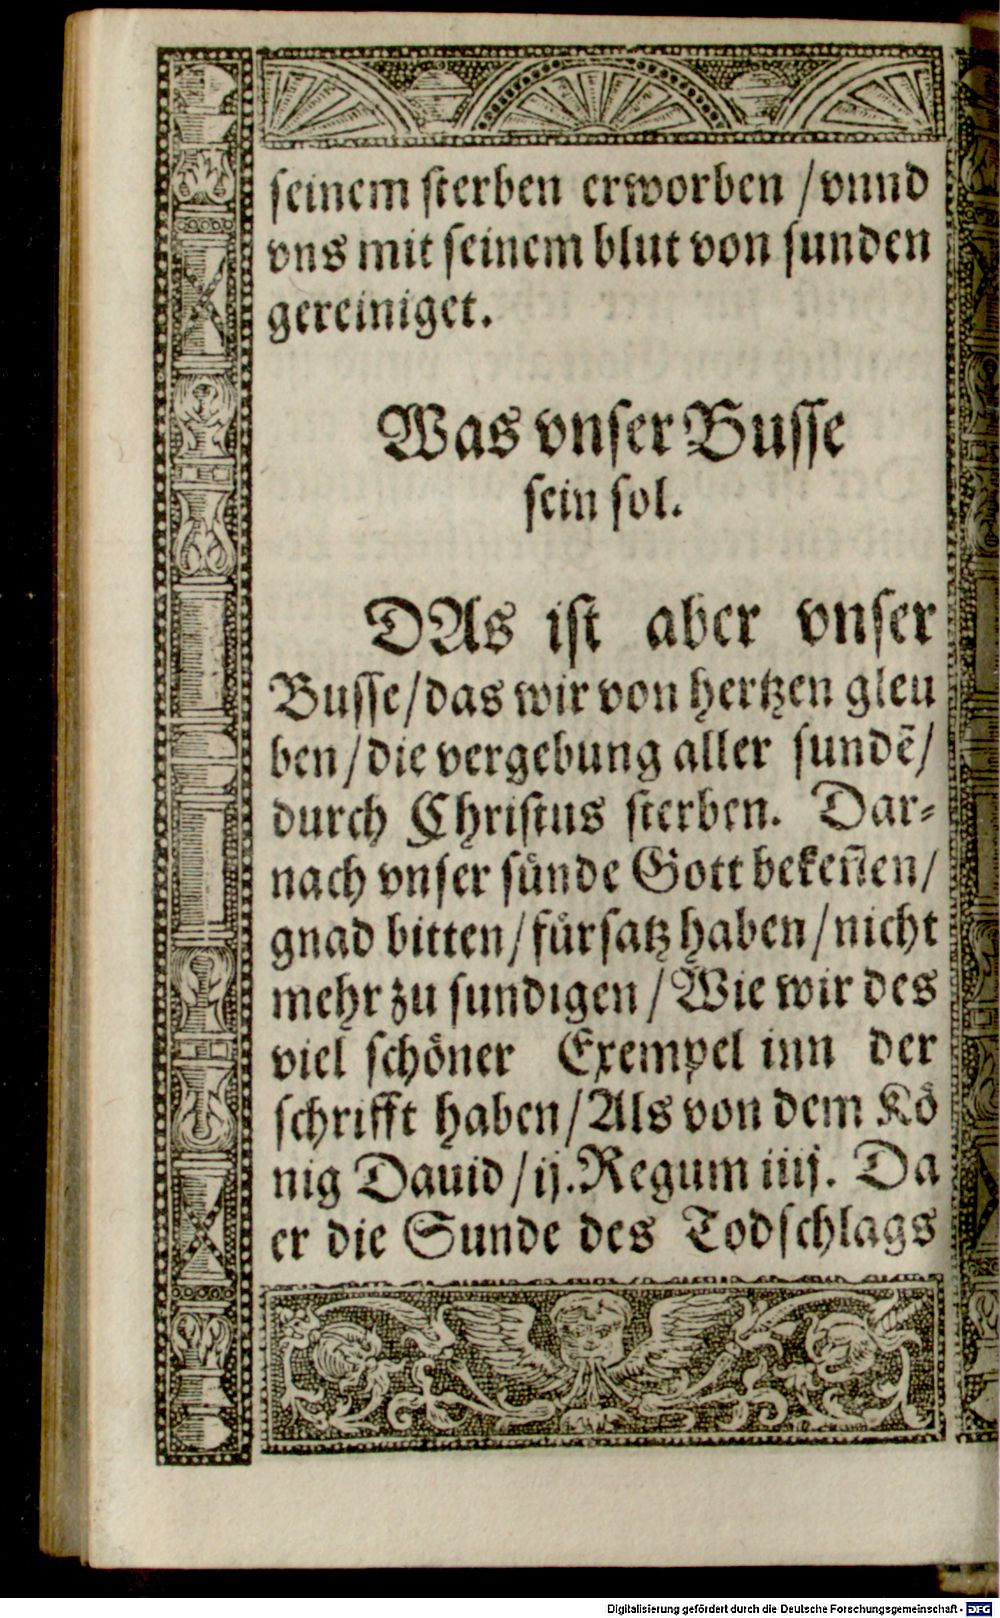 seinem sterben erworben / vnnd
vns mit seinem blut von sunden
gereiniget.
Was vnser Busse
sein sol.
DAs ist aber vnser
Busse / das wir von hertzen gleu
ben / die vergebung aller sundē /
durch Christus sterben. Dar⸗
nach vnser sůnde Gott bekeñen /
gnad bitten / fůrsatz haben / nicht
mehr zu sundigen / Wie wir des
viel schöner Exempel inn der
schrifft haben / Als von dem Kö
nig Dauid / ij. Regum iiij. Da
er die Sunde des Todschlags
Digitalisierung gefördert durch die Deutsche Forschungsgemeinschaft - DFG